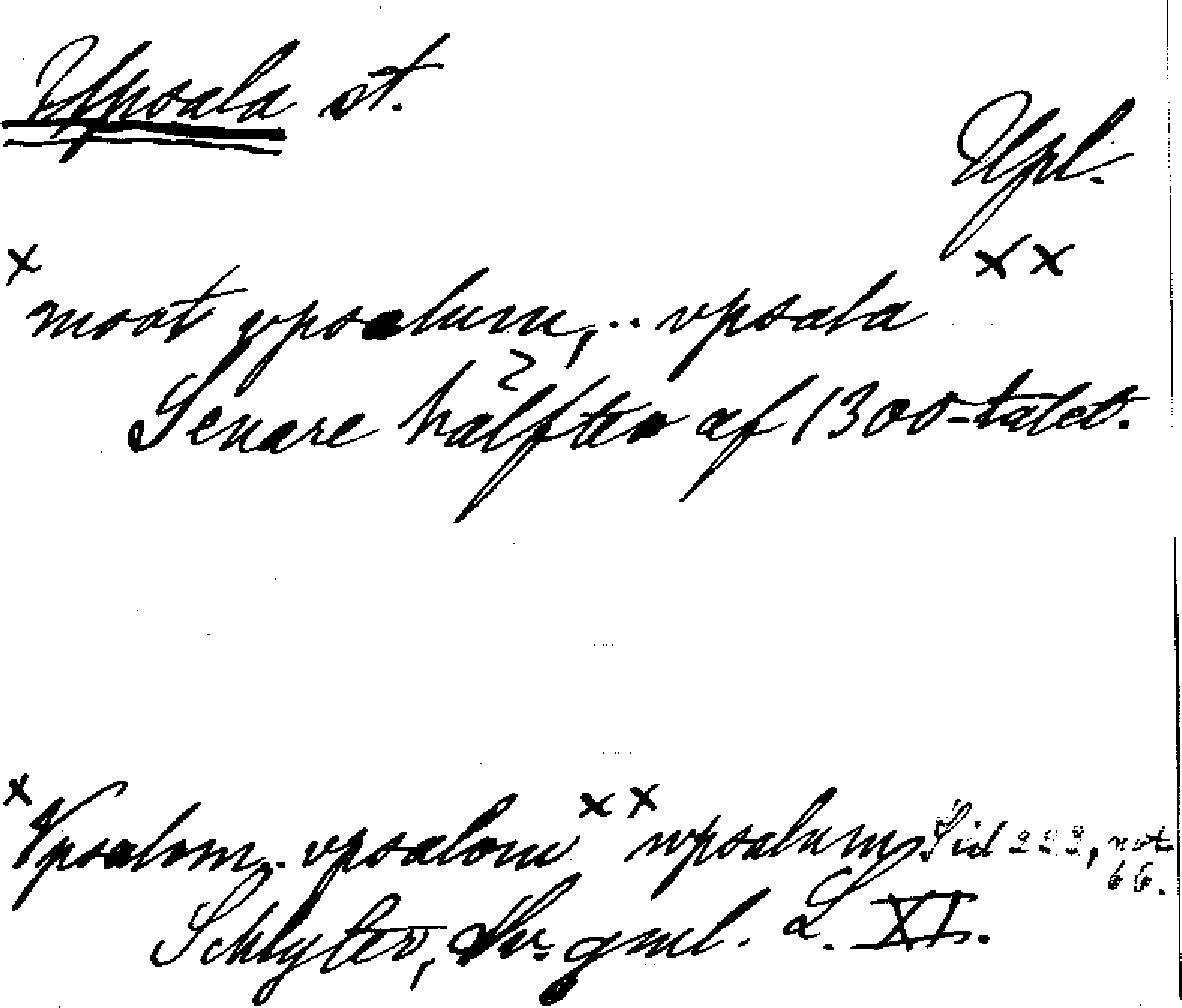 Uppsala st.
Upl.
x moot vpsalum, .. vpsala xx
Senare hälften af 1300-talet.
x Vpsalom .. vpsalom xx wpsalum Sid 222, not
66.
Schlyter, Sv. gml. L. XI.